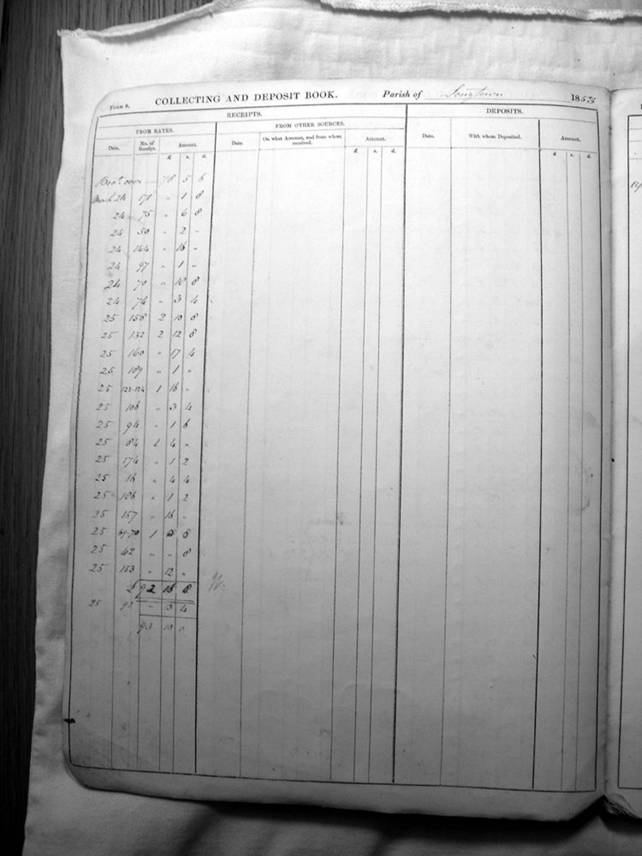 Form 9. COLLECTING AND DEPOSIT BOOK. Parish of Longtown 185
RECEIPTS. DEPOSITS.
FROM RATES. FROM OTHER SOURCES.
Date. No. of Receipt. Amount. Date. On what Account, and from whom received. Amount. Date. With whom Deposited. Amount.
£. s. d. £. s. d. £. s. d.
Bro't over 78 5 6
March 24 171 " 1 8
24 75 " 6 8
24 30 " 2 "
24 144 " 16 "
24 97 " 1 "
24 70 " 10 8
24 74 " 3 4
25 158 2 10 8
25 132 2 12 8
25 160 " 17 4
25 109 " 1 "
25 123-124 1 16 "
25 106 " 3 4
25 94 " 1 6
25 84 4 "
25 174 " 1 2
25 16 " 4 4
25 126 " 1 2
25 157 " 16 "
25 1 8
25 42 " " 8
25 153 " 12 "
£ 92 16 8
25 92 " 13 4
93 10 "